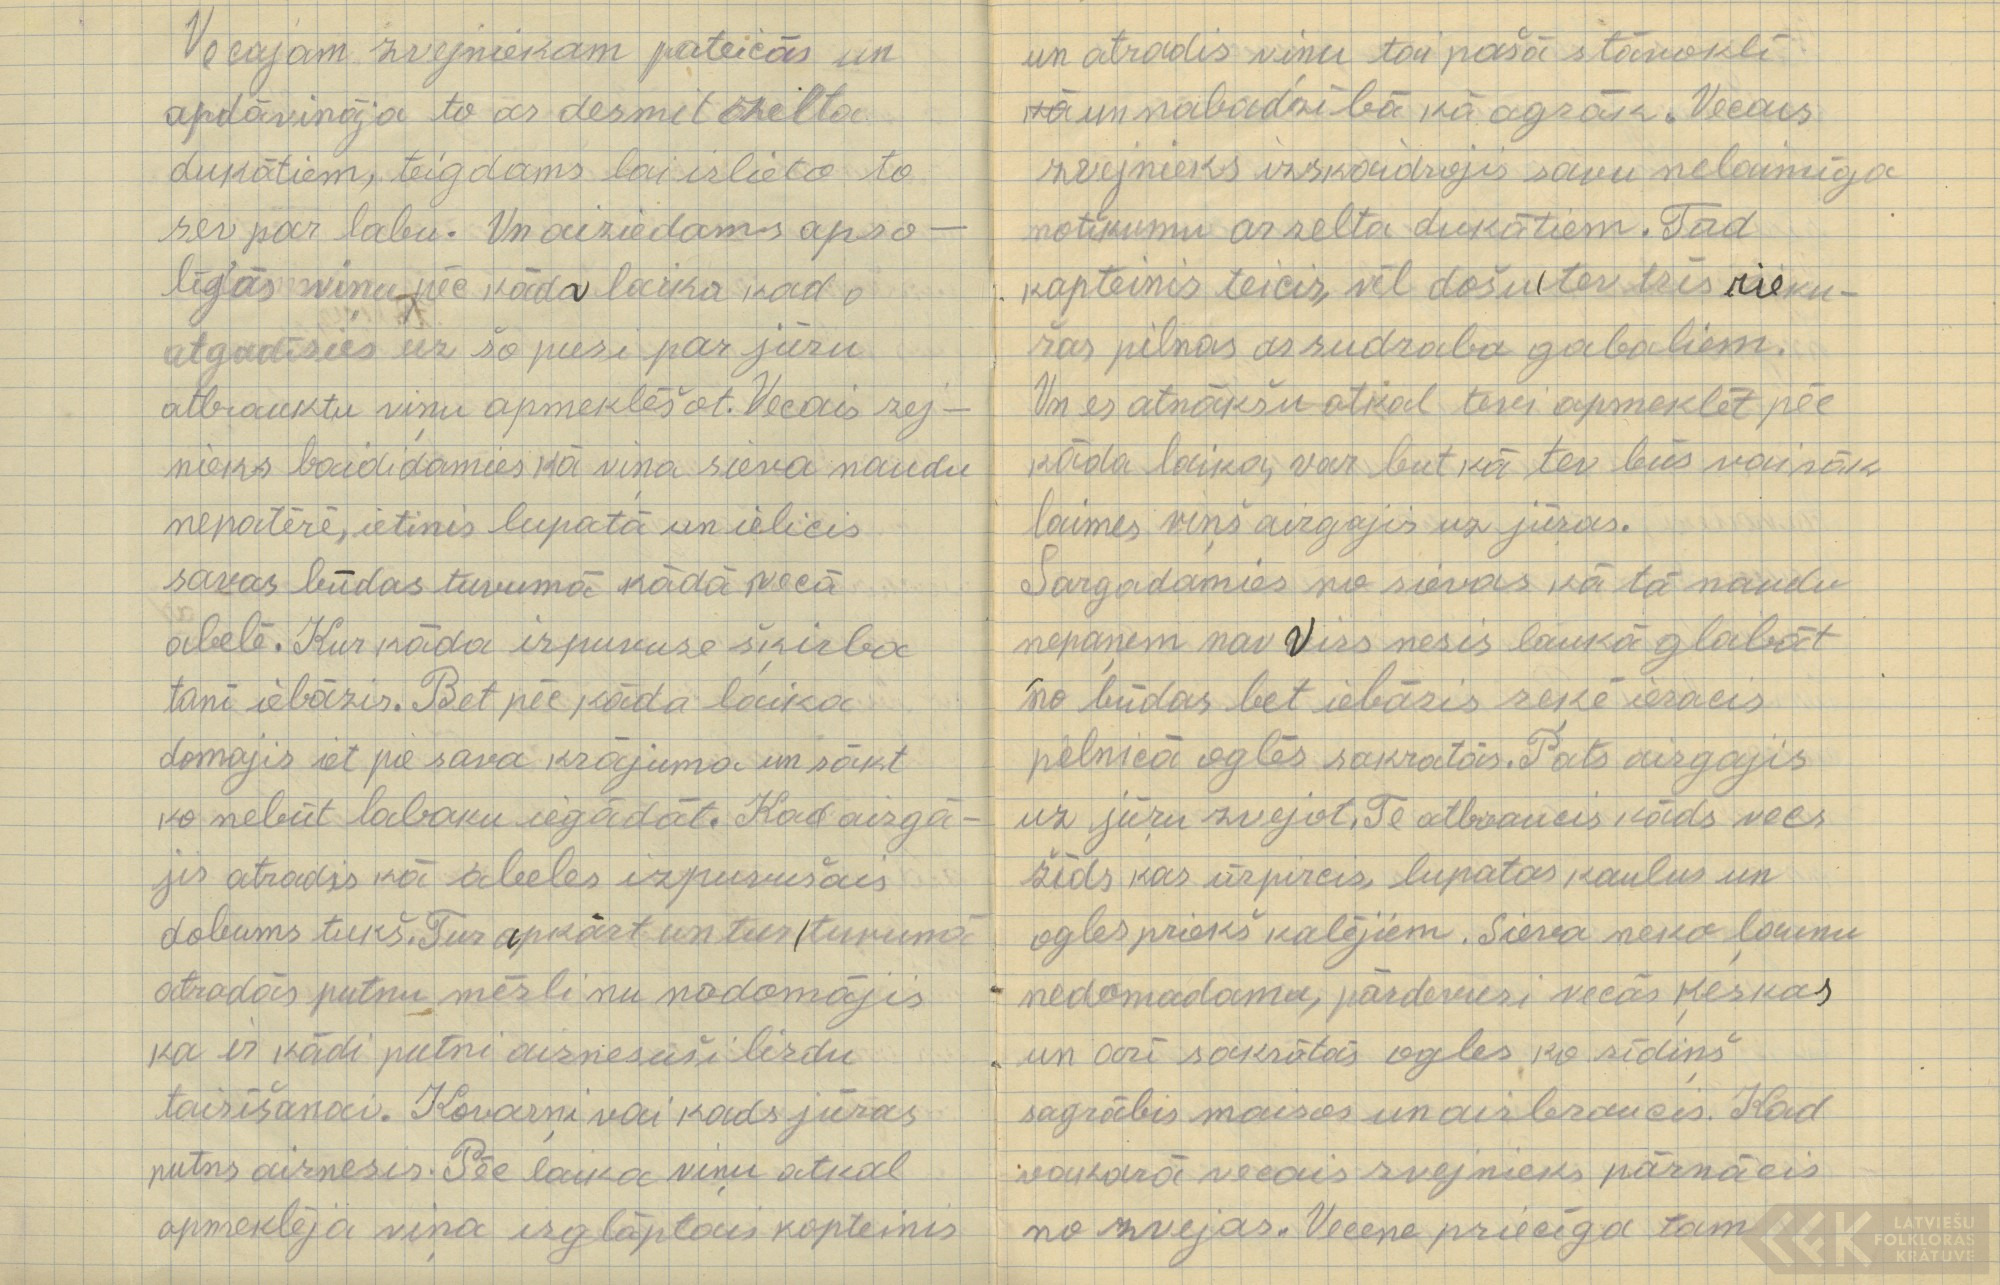 Vecajam zvejniekam pateicās un
apdāvināja to ar desmit zelta
dukātiem, teigdams lai izlieto to
sev par labu. Un aiziedams apso—
līgās viņu pēc kāda laika kad
atgadīsies uz šo pusi par jūru
atbrauktu viņu apmeklēšot. Vecais zej—
nieks baididamies kā viņa sieva naudu
nepatērē, ietinis lupatā un ielicis
savas būdas tuvumā kādā vecā
abelē. Kur kāda izpuvuse šķirba
tanī iebāzis. Bet pēc kāda laika
domajis iet pie sava krājuma un sākt
ko nebūt labaku iegādāt. Kad aizgā—
jis atradis kā abeles izpuvušais
dobums tukš. Tur apkārt un tur tuvumā
atradās putnu mēsli nu nodomājis
ka ir kādi putni aiznesuši lizdu
taisīšanai. Kovarņi vai kads jūras
putns aiznesis. Pēc laika viņu atkal
apmeklēja viņa izglāptais kapteinis
un atradis viņu tai pašā stāvoklī
un nabadzībā kā agrāk. Vecais
zvejnieks izskaidrojis savu nelaimīga
notikumu ar zelta dukātiem. Tad
kapteinis teicis, vēl došu tev trīs rieku—
šas pilnas ar sudraba gabaliem.
Un es atnākšu atkal tevi apmeklēt pēc
kāda laika, var but kā tev būs vairāk
laimes viņš aizgajis uz jūras.
Sargadamies no sievas kā tā naudu
nepaņem nav Virs nesis laukā glabāt
no būdas bet iebāzis zeķē ieracis
pelnicā oglēs sakratās. Pats aizgajis
uz jūru zvejot. Te atbraucis kāds vecs
žīds kas uzpircis lupatas kaulus un
ogles priekš kalējiem. Sieva neko ļaunu
nedomadama, pārdevusi vecās ķeskas
un arī sakrātās ogles ko zīdiņš
sagrābis maisos un aizbraucis. Kad
vakarā vecais zvejnieks pārnācis
no zvejas. Vecene priecīga tam
LATVIEŠU
FOLKLORAS
KRĀTUVE